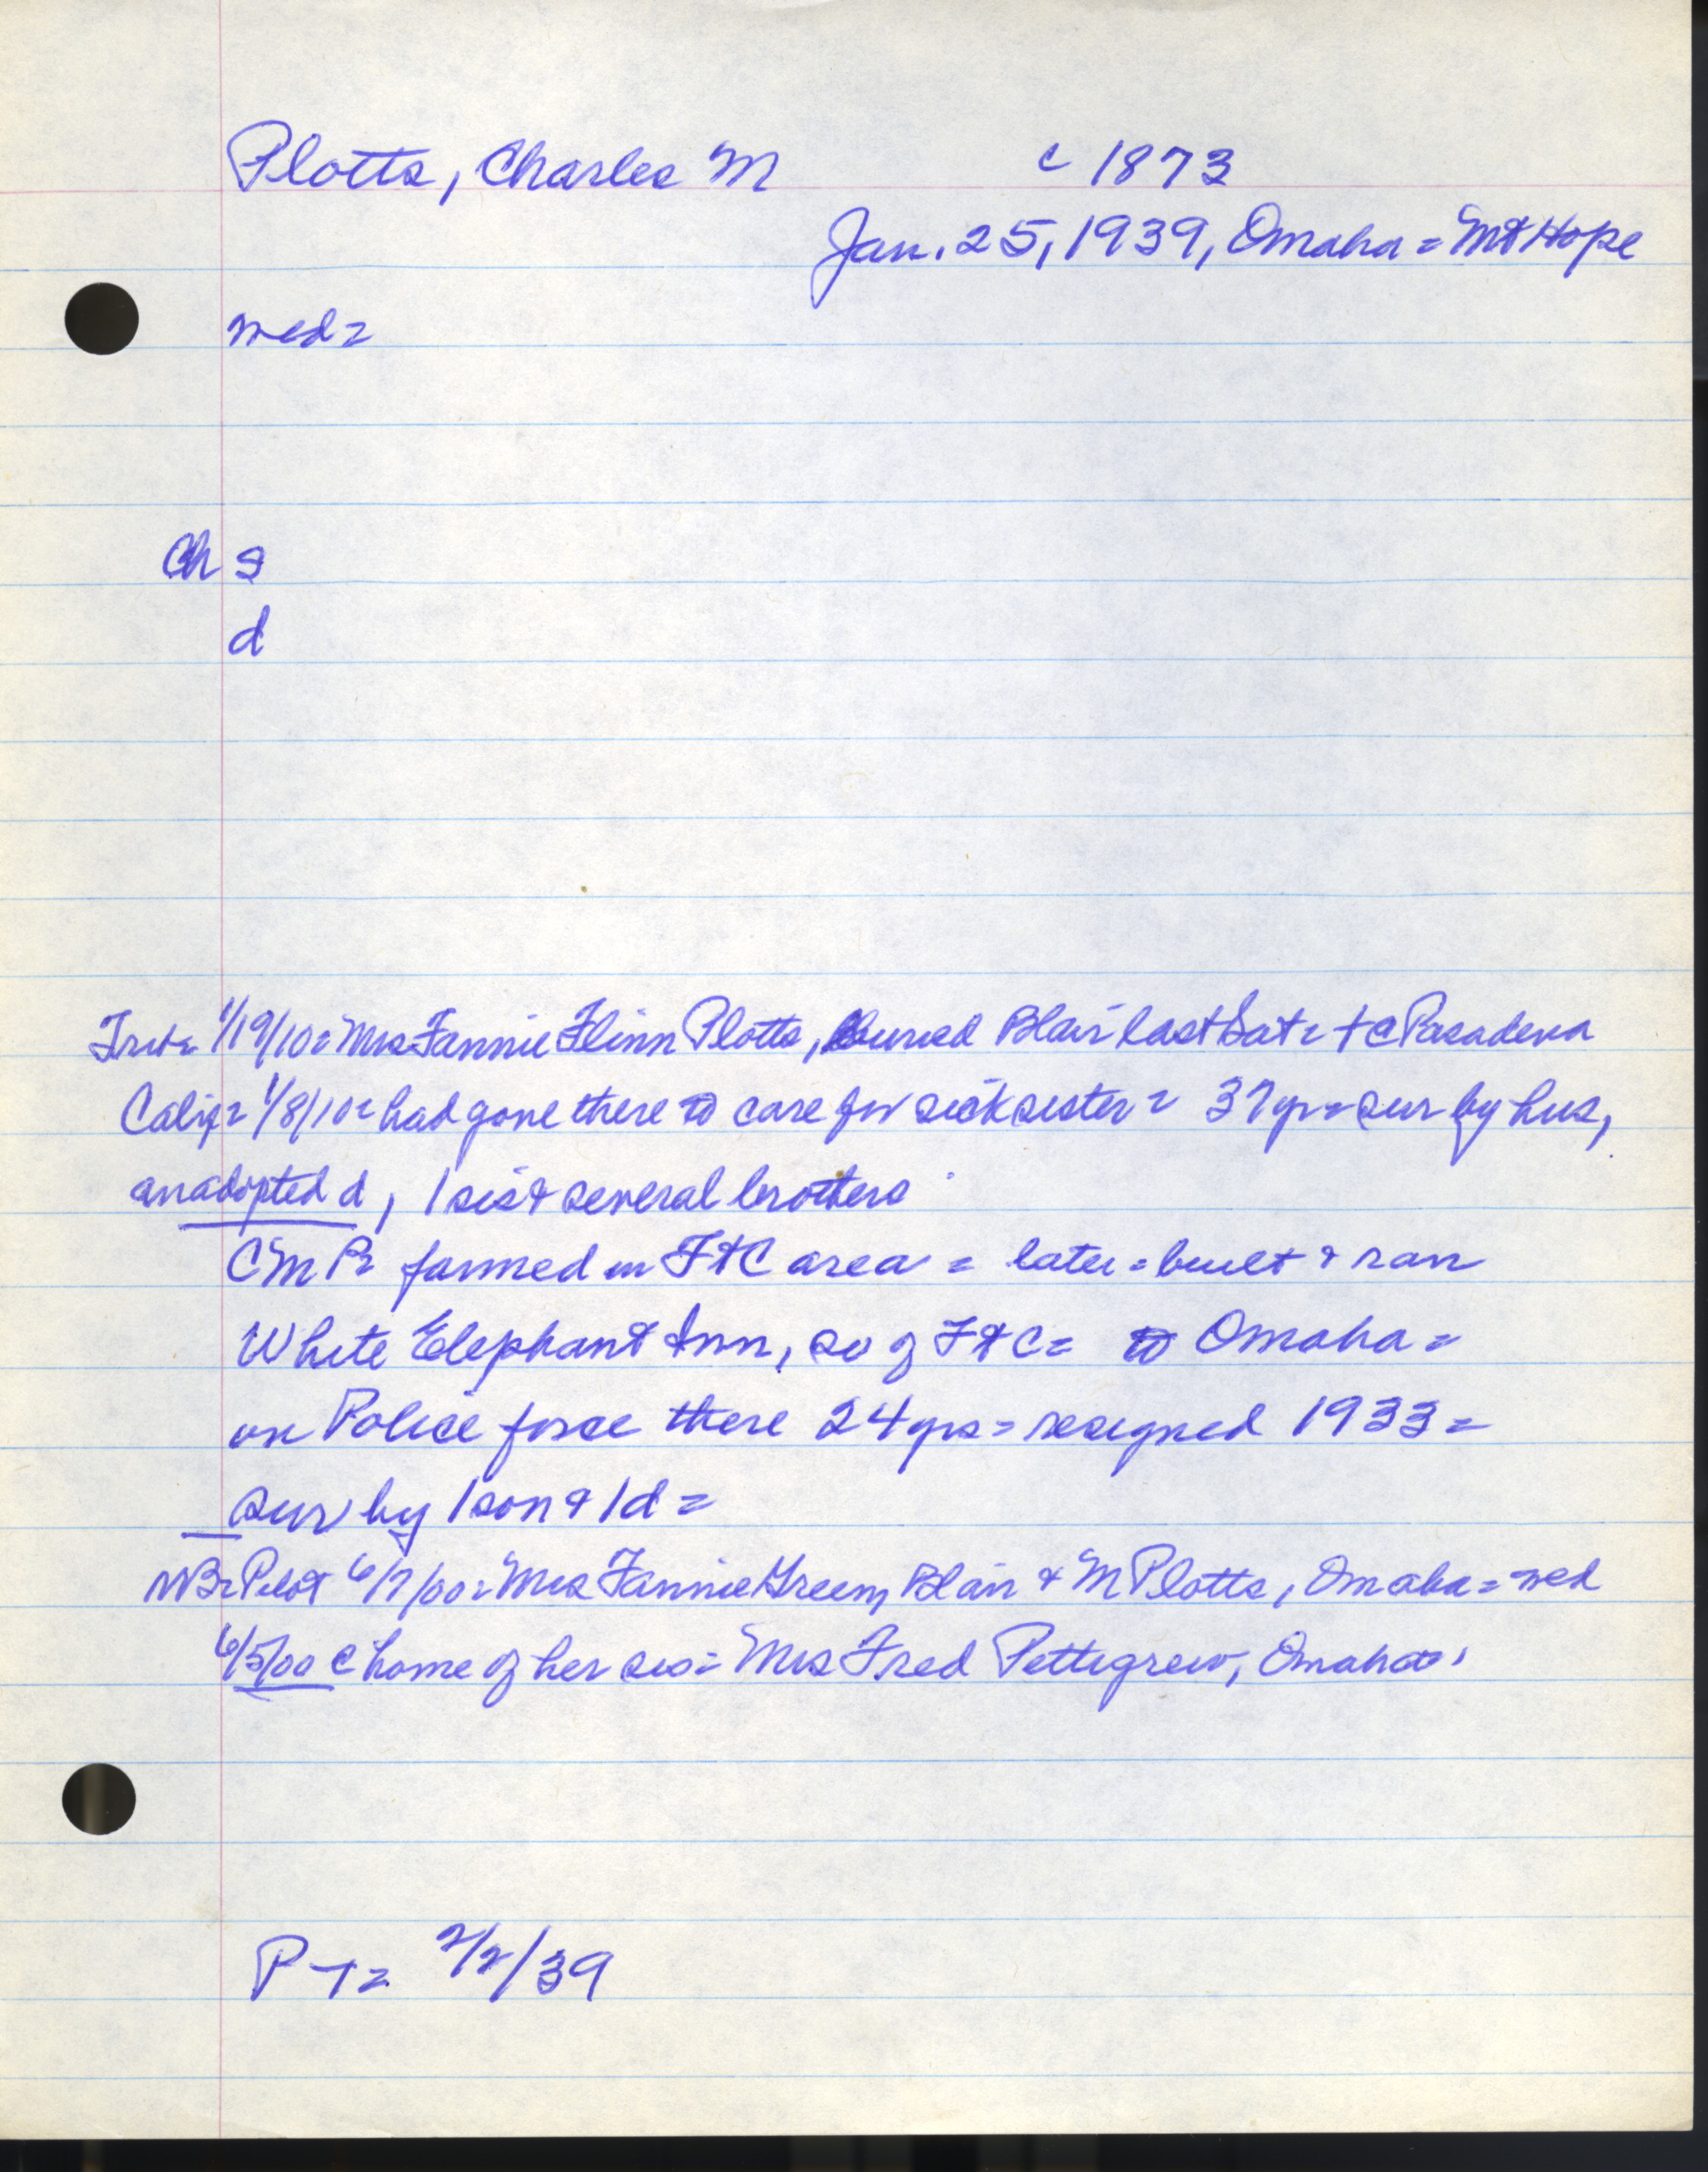 Plotts, Charles M c 1873
Jan. 25, 1939, Omaha = Mt Hope
med =
Ch s
d
Trib = 1/19/10 = Mrs Fannie Flinn Plotts, buried Blair last Sat = + @ Pasadena
Calif = 1/8/10 = had gone there to care for sick sister = 37 yr = sur by hus,
an adopted d, 1 sis & several brothers
CMP = farmed in Ft C area = later = built & ran
White Elephant Inn, so of Ft C = to Omaha =
on Police force there 24 yrs = resigned 1933 =
sur by 1 son & 1 d =
NB = Pilot 6/7/00 = Mrs Fannie Green, Blair & M Plotts, Omaha = med
6/5/00 @ home of her sis = Mrs Fred Pettigrew, Omaha
P-T = 2/2/39